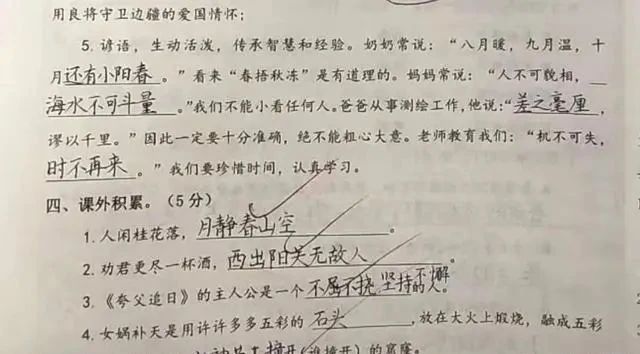 用良将守卫边疆的爱国情怀；
5. 谚语，生动活泼，传承智慧和经验。奶奶常说：“八月暖，九月温，十
月还有小阳春。”看来“春捂秋冻”是有道理的。妈妈常说：“人不可貌相，
海水不可斗量。”我们不能小看任何人。爸爸从事测绘工作，他说：“差之毫厘，
谬以千里。”因此一定要十分准确，绝不能粗心大意。老师教育我们：“机不可失，
时不再来。”我们要珍惜时间，认真学习。
四、课外积累。（5分）
1. 人闲桂花落，月静春山空。
2. 劝君更尽一杯酒，西出阳关无故人。
3. 《夸父追日》的主人公是一个不屈不挠 坚持不懈的人。
4. 女娲补天是用许许多多五彩的石头，放在大火上煅烧，融成五彩
撞开（谁撞开）的窟窿。